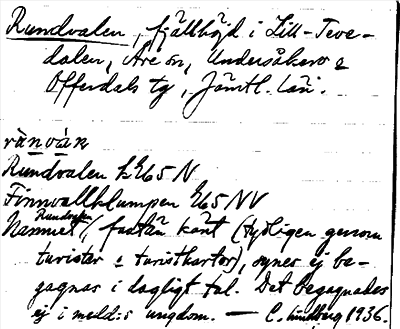 Rundvalen, fjällhöjd i Lill-Teve-
dalen, Åre sn, Undersåkers &
Offerdals tg, Jämtl. län.
rànvák
Rundvalen h65 N
Finnvallklumpen 65 NV
Rundvalen
Namnet, fastän känt (tydligen genom
turister & turistkartor), synes ej be-
gagnas i dagligt tal. Det begagnades
ej i medd:s ungdom. — C. Lundberg 1936.